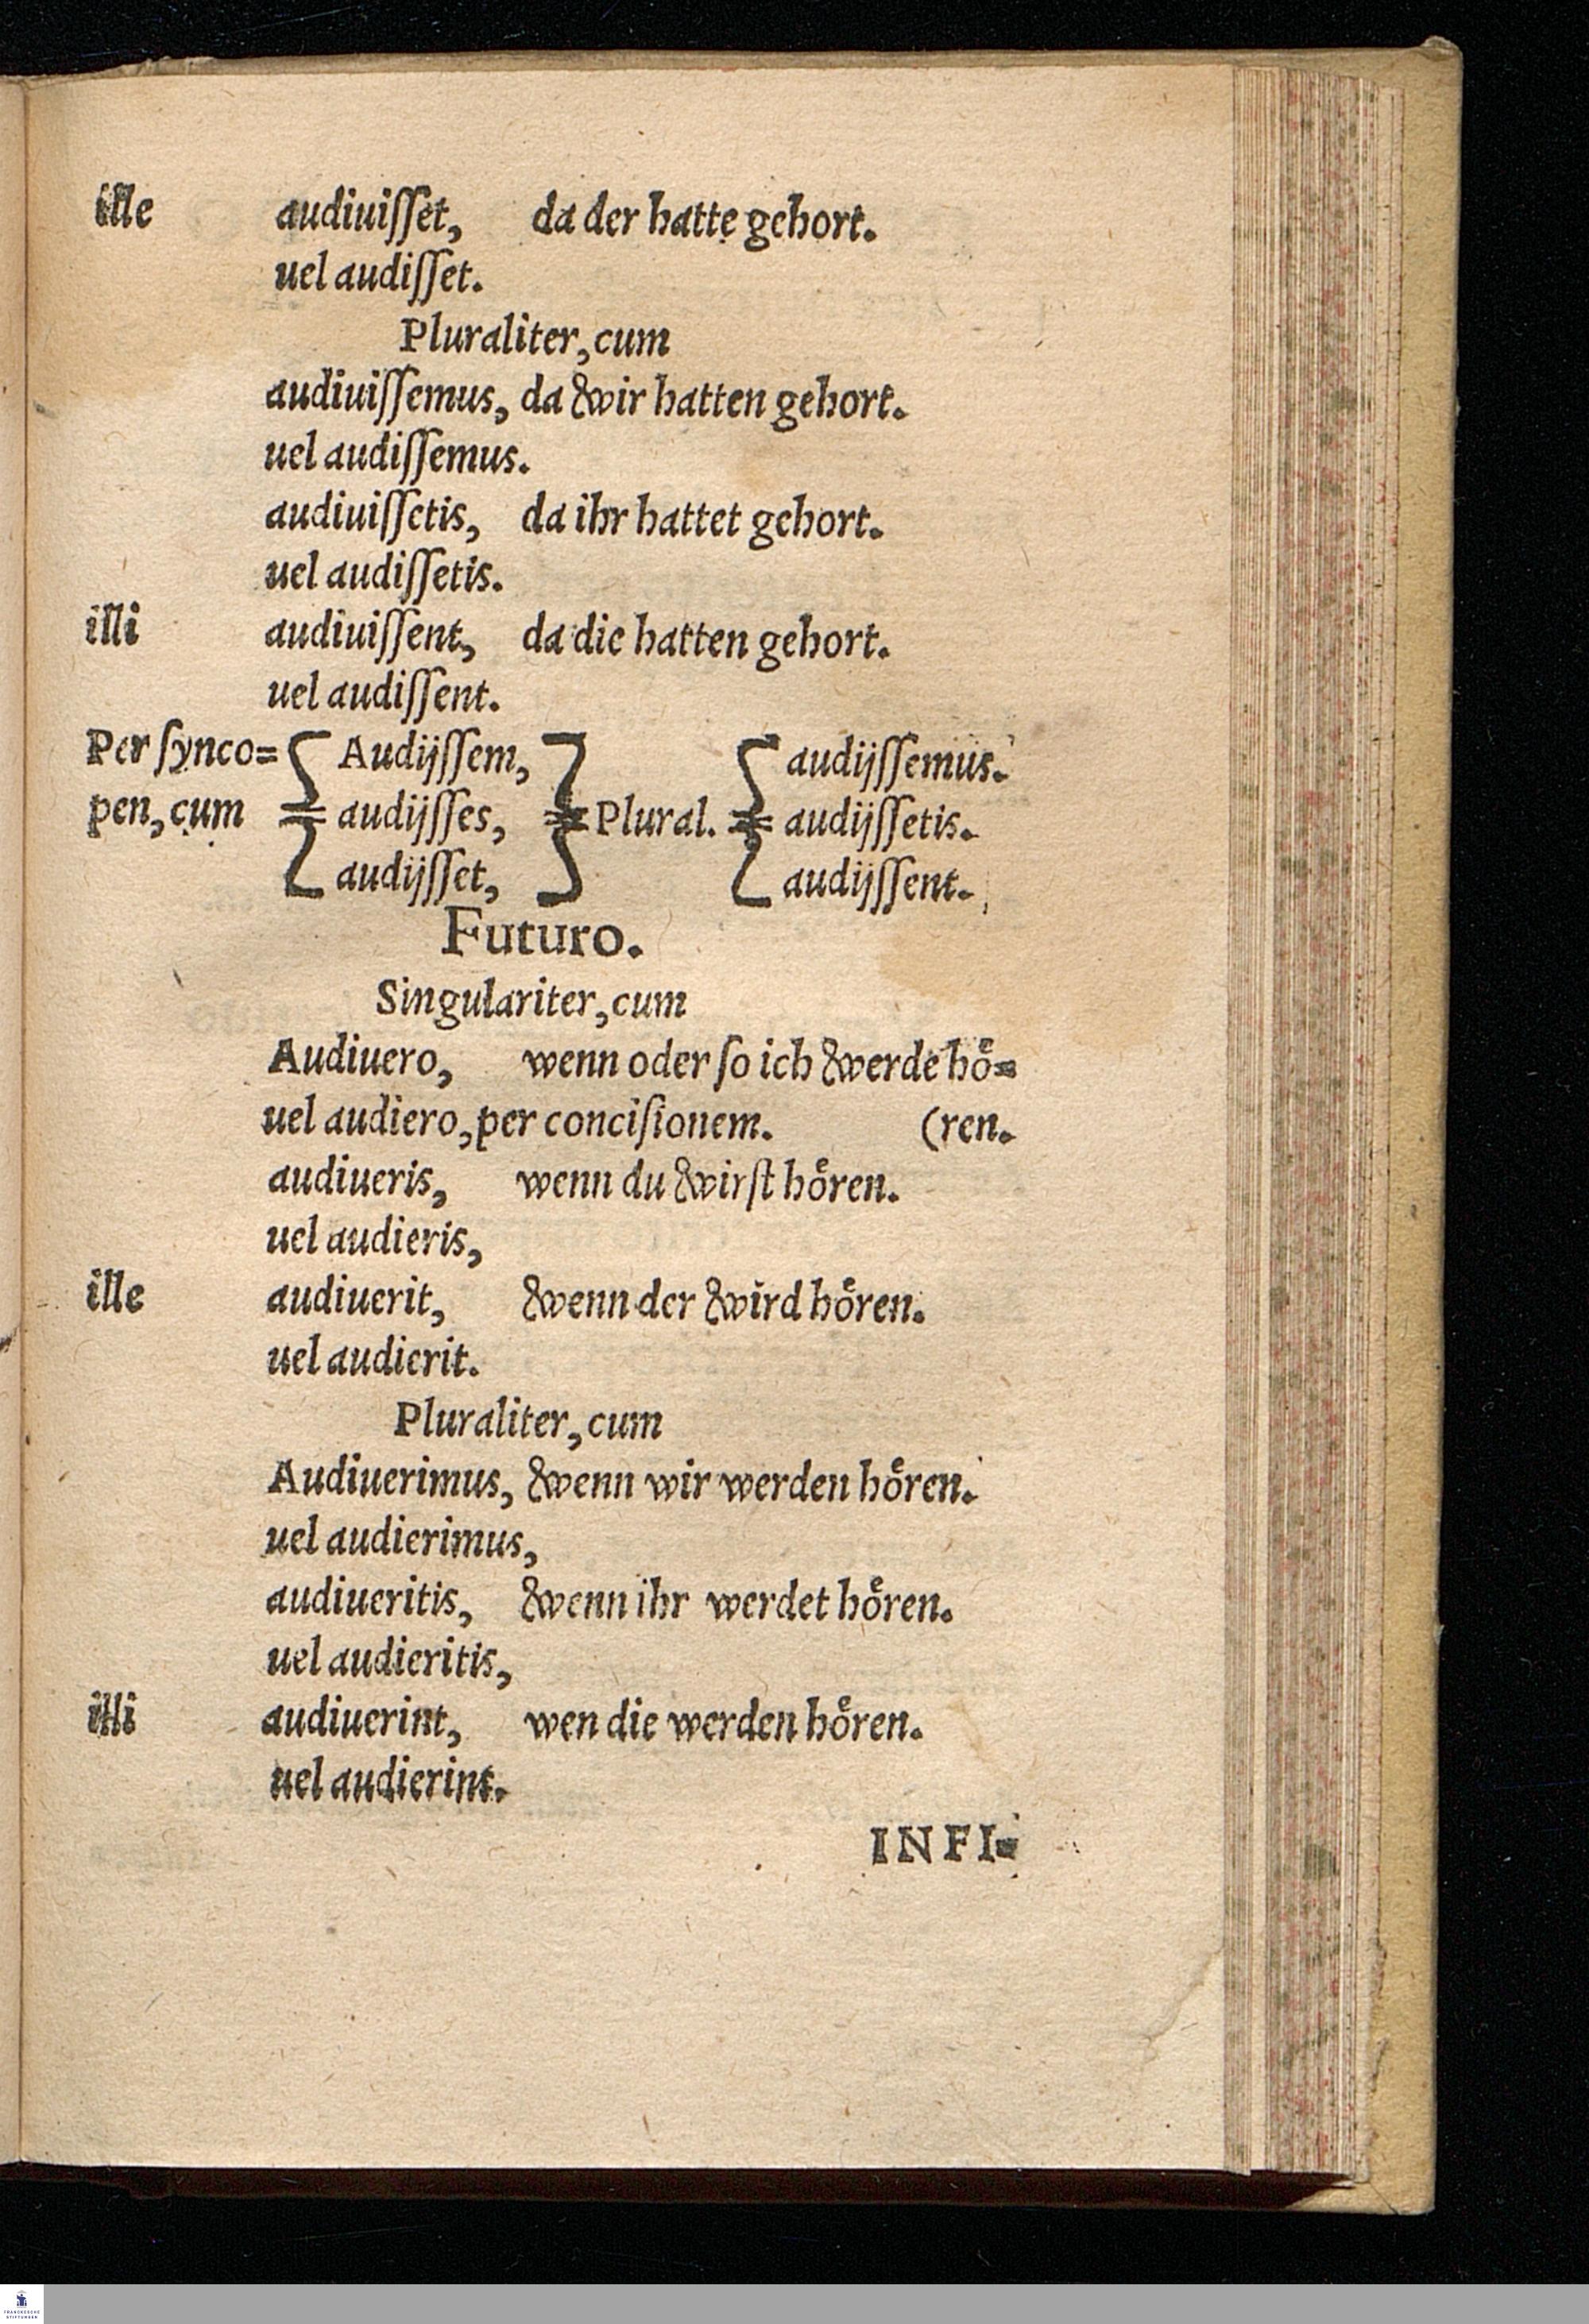 ille audiuiſſet, da der hatte gehort.
uel audiſſet.
Pluraliter, cum
audiuiſſemus, da wir hatten gehort.
uel audiſſemus.
audiuiſſetis, da ihr hattet gehort.
uel audiſſetis.
illi audiuiſſent, da die hatten gehort.
uel audiſſent.
Per ſynco= Audijſſem, audijſſemus.
pen, cum audijſſes, Plural. audijſſetis.
audijſſet, audijſſent.
Futuro.
Singulariter, cum
Audiuero, wenn oder ſo ich werde hoͤ=
uel audiero, per conciſionem. (ren.
audiueris, wenn du wirſt hoͤren.
uel audieris,
ille audiuerit, wenn der wird hoͤren.
uel audierit.
Pluraliter, cum
Audiuerimus, wenn wir werden hoͤren.
uel audierimus,
audiueritis, wenn ihr werdet hoͤren.
uel audieritis,
illi audiuerint, wen die werden hoͤren.
uel audierint.
INFI=
FRANCKESCHE
STIFTUNGEN